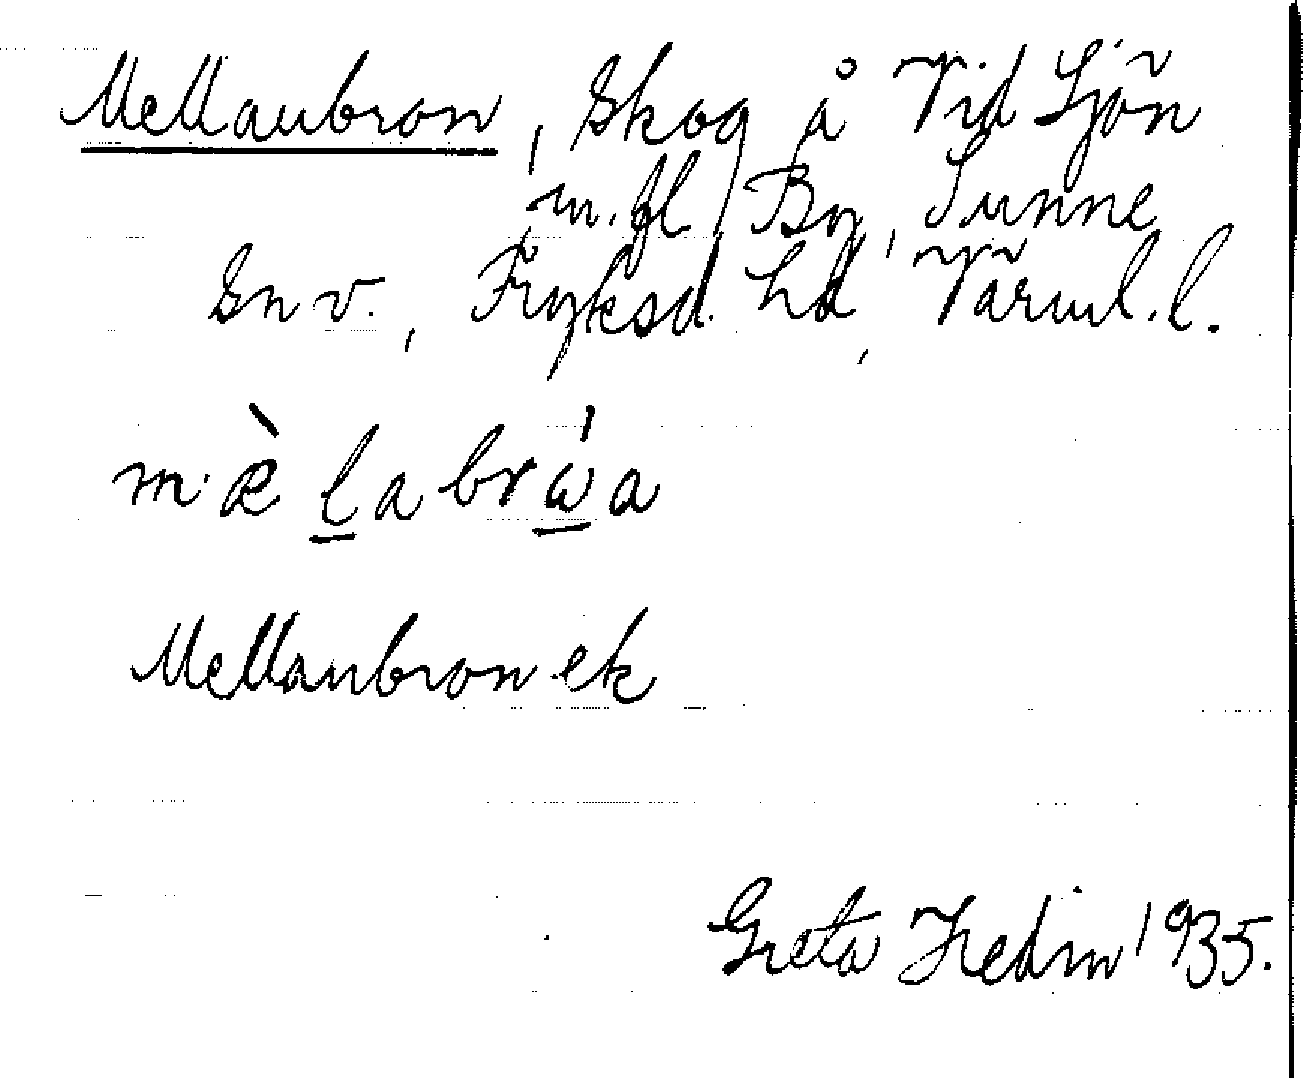 Mellanbron, Skog å Vid Sjön
m.fl. By, Sunne
Sn v., Fryksd. hd, Värml.l.
mæ̀l̲abrώ̲a
Mellanbron ek
Greta Hedin 1935.